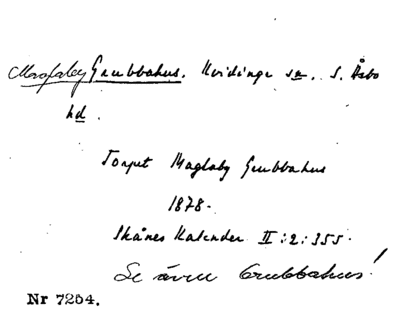 Maglaby Grubbahus. Kvidinge sn. S. Åsbo
hd.
Torpet Maglaby Grubbahus
1878.
Skånes Kalender II:2:355.
Se även Grubbahus!
Nr 7254.